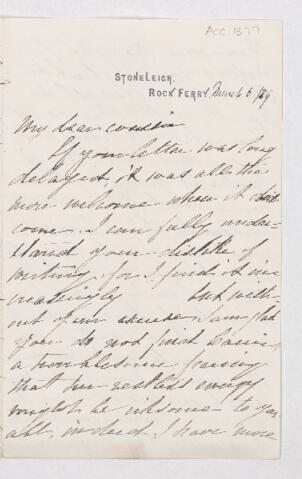 ACC. 1377
STONELEIGH,
ROCK FERRY, March 6 /89
My dear cousin
If your letter was long
delayed, it was all the
more welcome when it did
come. I can fully under-
stand your dislike of
writing, for I find it in-
creasingly but with-
out I am glad
you do not find
a troublesome fearing
that her restless energy
might be irksome to you
all, indeed I have more